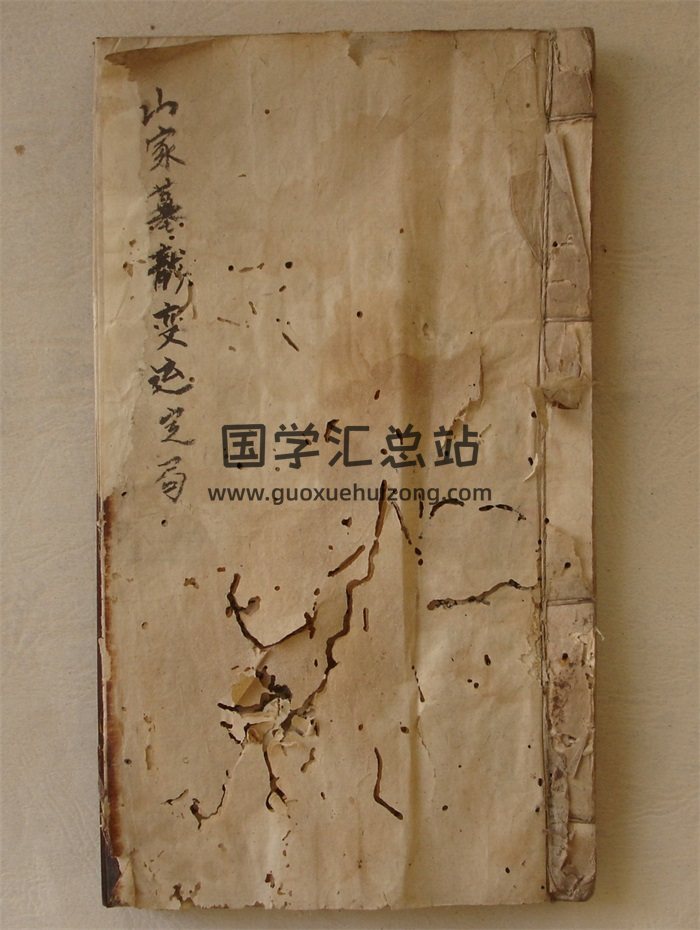 山家墓龍变运定局
国学汇总站
www.guoxuehuizong.com